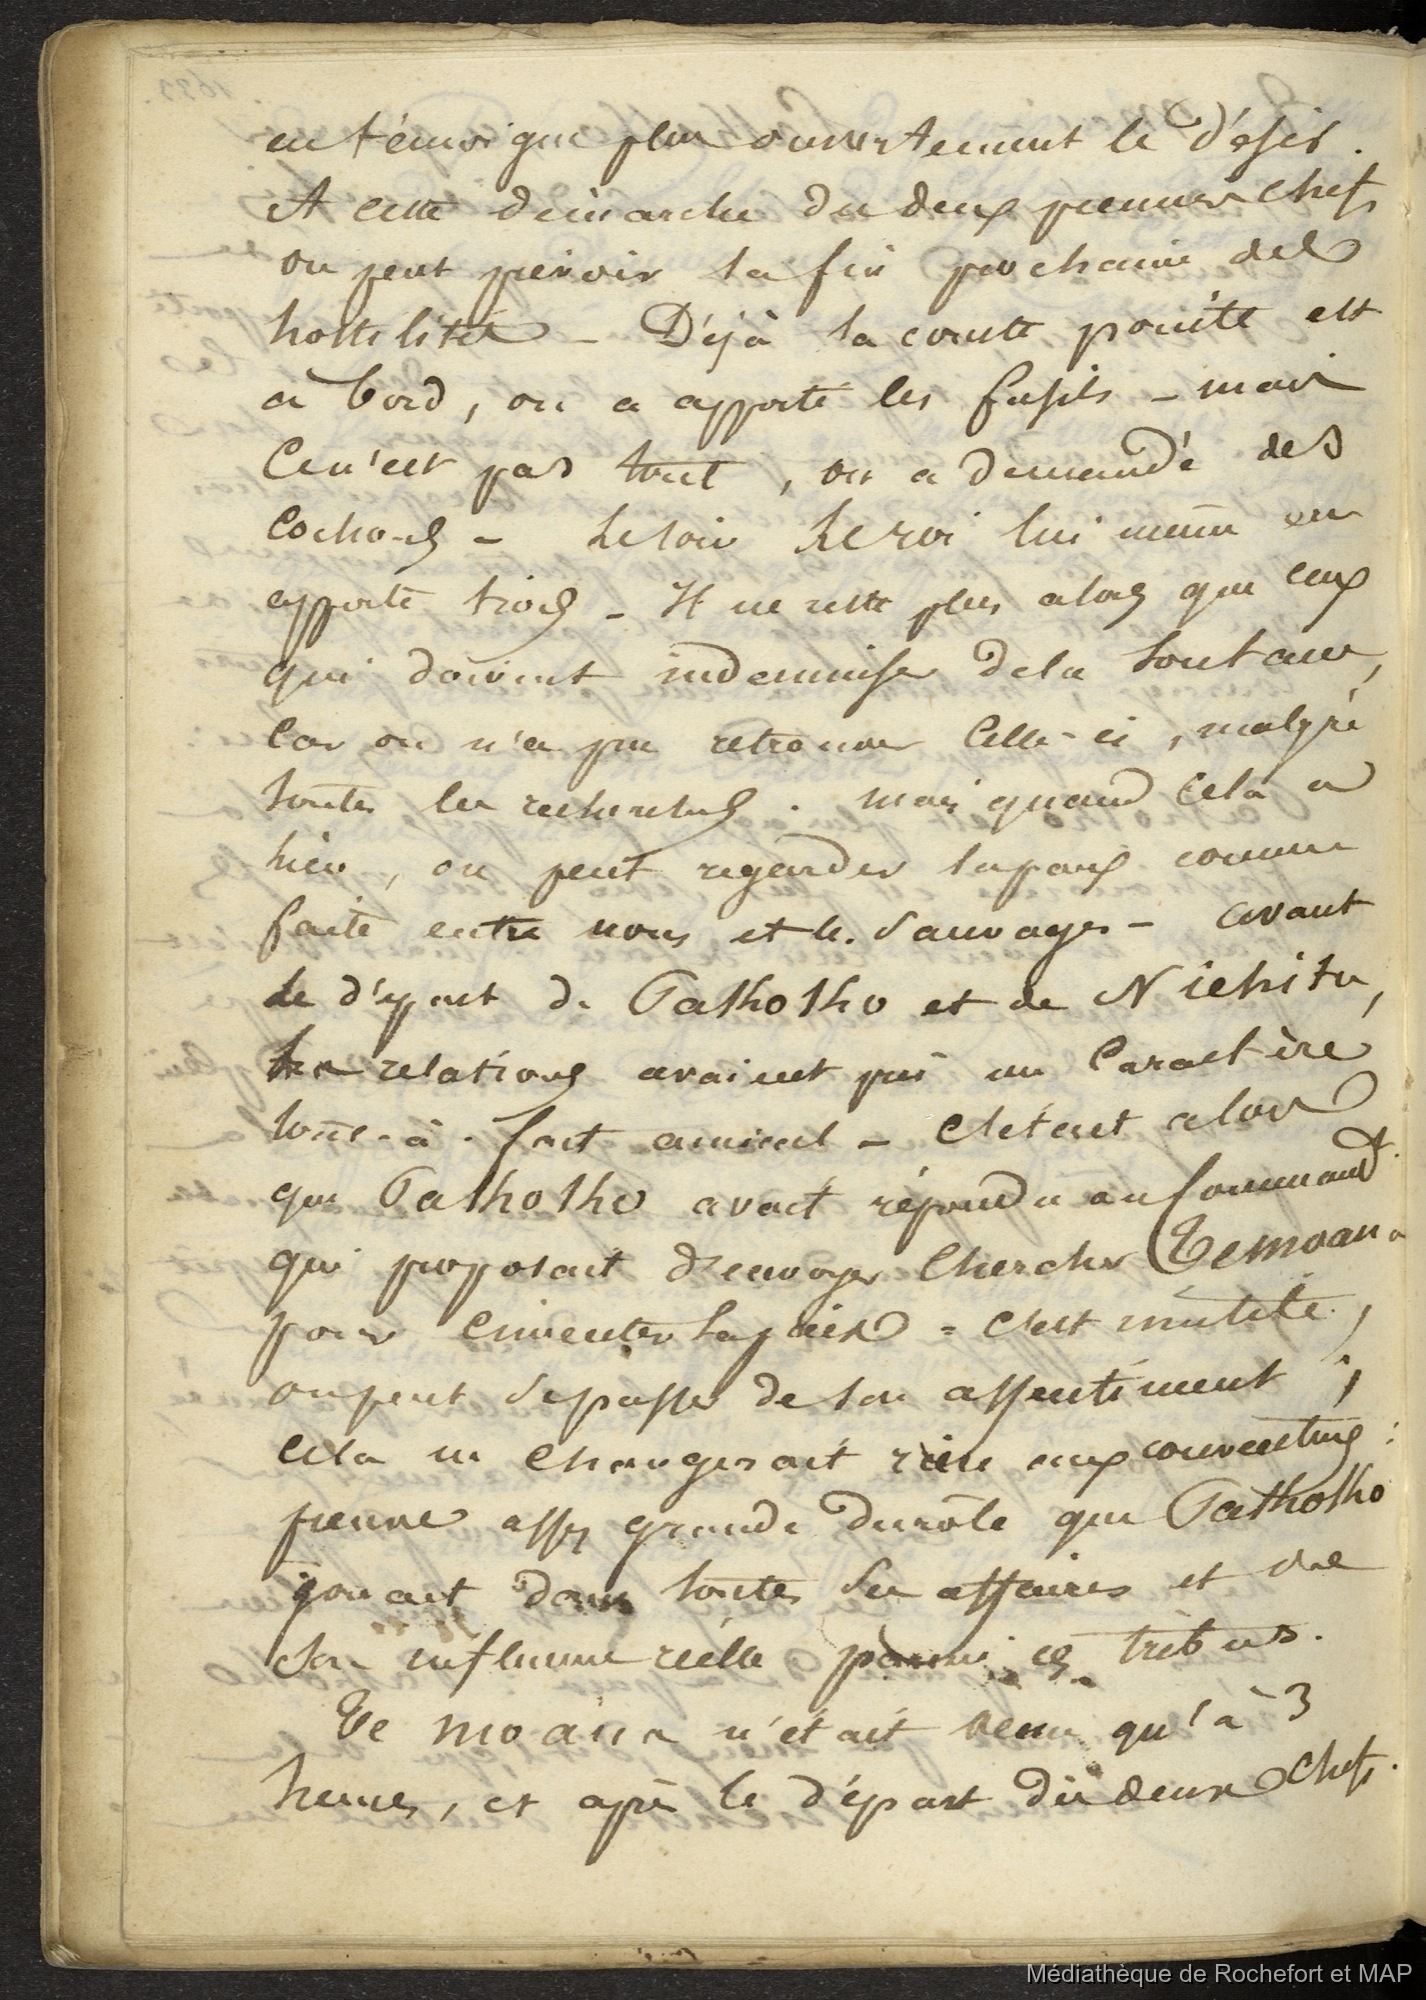 en témoigne plus ouvertement le désir.
A cette démarche des deux premiers chefs
on peut prévoir la fin prochaine des
hostilités – Déjà la courte pointe est
à bord, on a apporté les fusils – mais
Ce n'est pas tout, on a demandé des
Cochons – Le soir Le roi lui même en
apporte trois – Il ne reste plus alors que ceux
qui doivent indemniser de la
Car on n'a pu retrouver Celle-ci, malgré
toutes les recherches. mais quand cela a
lieu, on peut regarder la paix comme
faite entre nous et les Sauvages – avant
le départ de Pathotho et de Niehitu,
les relations avaient pris un Caractère
tout-à-fait amical – C'était alors
que Pathotho avait répondu au Command.t
qui proposait d'envoyer Chercher Temoana
pour cimenter la paix = C'est inutile,
on peut se passer de son assentiment;
Cela ne changerait rien aux conventions:
preuve assez grande du rôle que Pathotho
jouait dans toutes ces affaires et de
son influence réelle parmi ces tribus.
Te moana n'était venu qu'à 3
heures, et après le départ des deux chefs.
Médiathèque de Rochefort et MAP